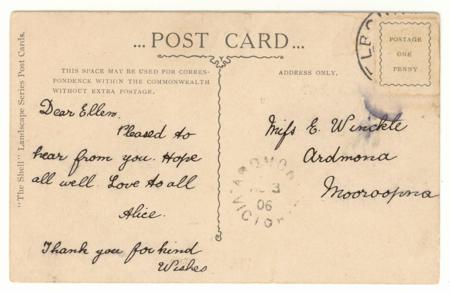 ... POST CARD...
THIS SPACE MAY BE USED FOR CORRES-
PONDENCE WITHIN THE COMMONWEALTH
WITHOUT EXTRA POSTAGE.
ADDRESS ONLY.
POSTAGE
ONE
PENNY
"The Shell" Landscape Series Post Cards.
Dear Ellen.
Pleased to
hear from you. Hope
all well. Love to all
Alice.
Thank you for kind
Wishes
Miss E. Winckle
Ardmona
Mooroopna
3
06
VICTORIA